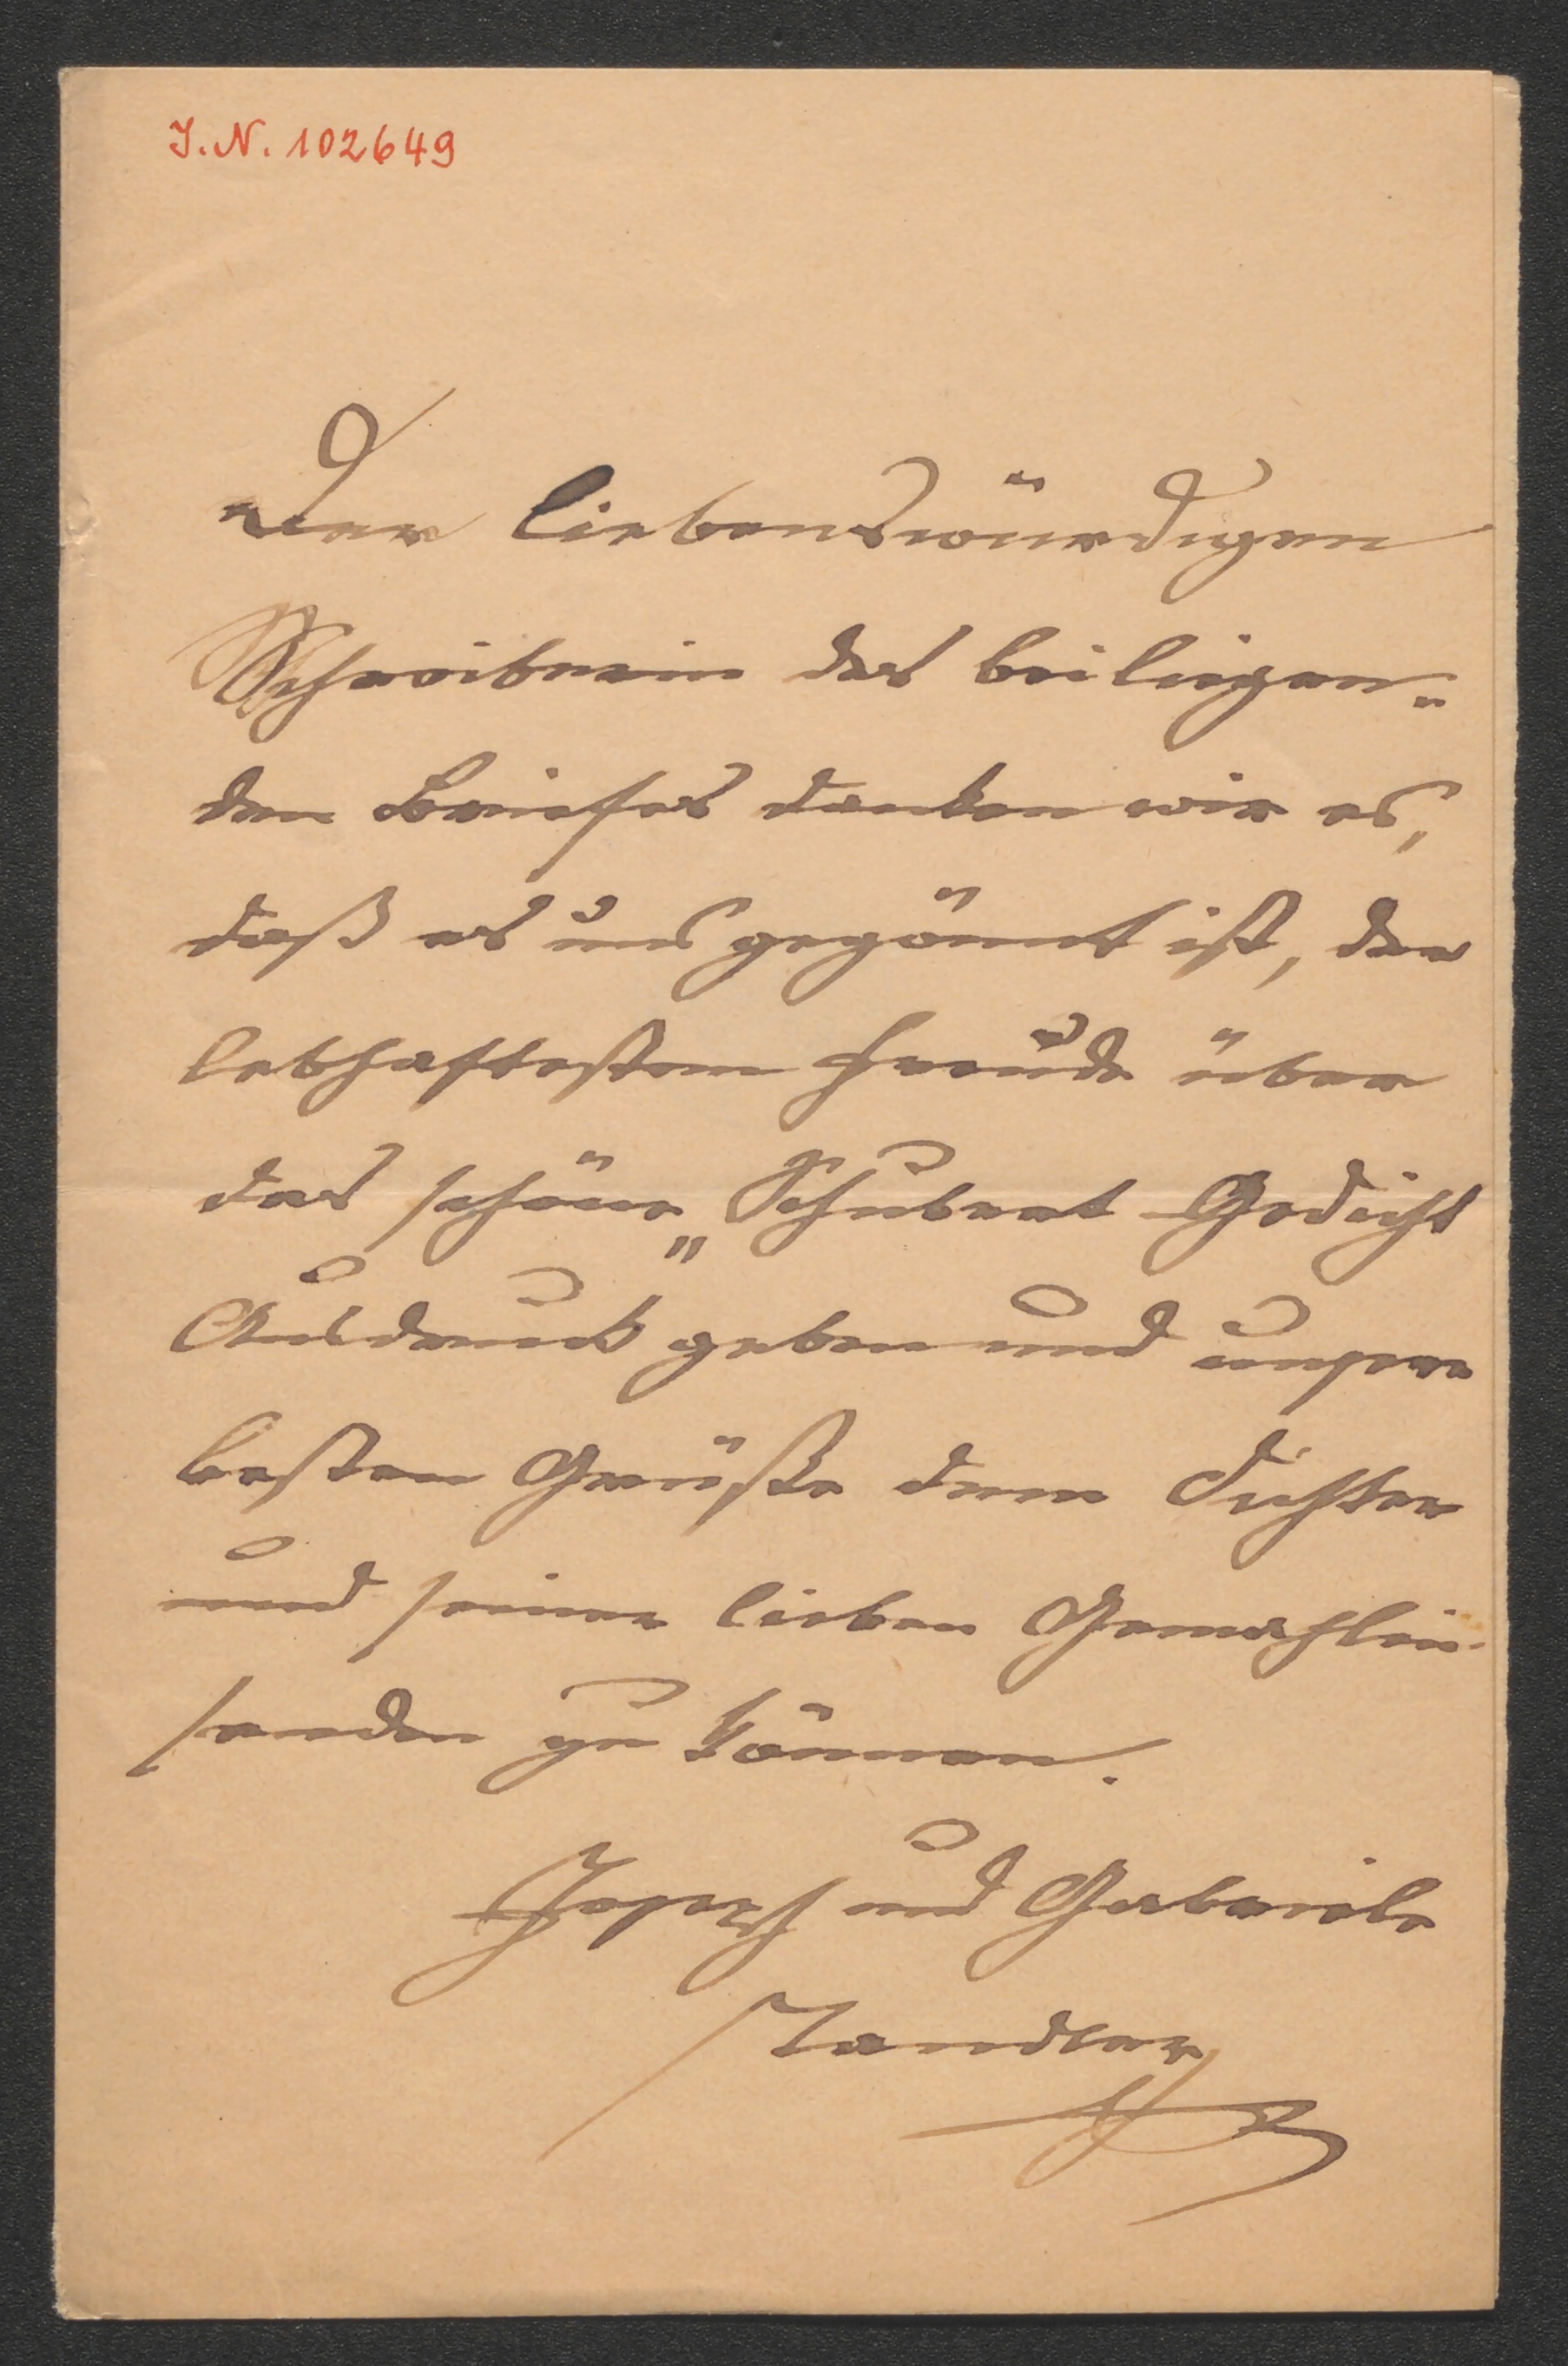 I. N. 102649
Der liebenswürdigen
Schreiberin des beiliegen-
den Briefes danken wir es,
daß es uns gegönnt ist, der
lebhaftesten Freude über
das schöne „Schubert Gedicht
Ausdruck geben und unsere
besten Grüße dem Dichter
und seiner lieben Gemahlin
senden zu können.
Josef und Gabriele